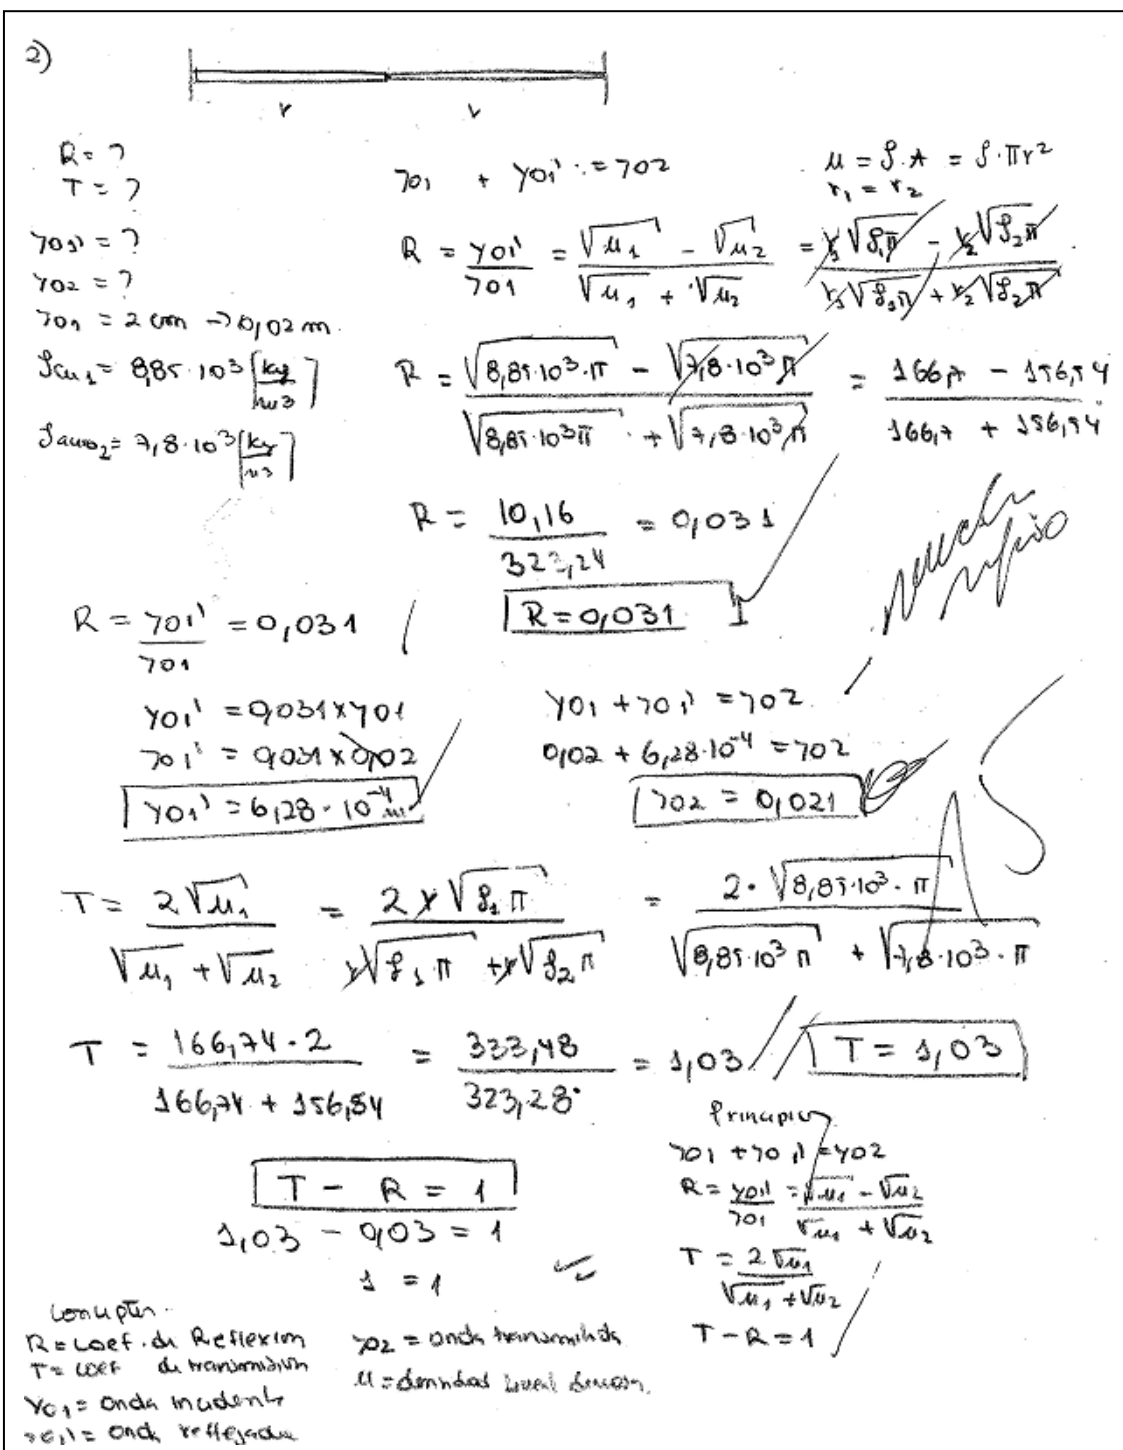 2)
r r
R = ?
T = ?
y01' = ?
y02 = ?
y01 = 2 cm → 0,02 m.
ρcu1 = 8,85·10³ [kg/m³]
ρacero2 = 7,8·10³ [kg/m³]
y01 + y01' = y02
μ = ρ·A = ρ·πr²
r1 = r2
R = y01'/y01 = (√μ1 - √μ2)/(√μ1 + √μ2) = (r1√ρ1π - r2√ρ2π)/(r1√ρ1π + r2√ρ2π)
R = (√8,85·10³·π - √7,8·10³π)/(√8,85·10³π + √7,8·10³π) = (166,7 - 156,54)/(166,7 + 156,54)
R = 10,16/323,24 = 0,031
R = 0,031
R = y01'/y01 = 0,031
y01' = 0,031 x y01
y01' = 0,031 x 0,02
y01' = 6,28·10⁻⁴ m
y01 + y01' = y02
0,02 + 6,28·10⁻⁴ = y02
y02 = 0,021
T = 2√μ1/(√μ1 + √μ2) = 2r√ρ1π/(r√ρ1π + r√ρ2π) = 2·√8,85·10³·π/(√8,85·10³π + √7,8·10³·π)
T = 166,74·2/(166,74 + 156,54) = 333,48/323,28 = 1,03
T = 1,03
T - R = 1
1,03 - 0,03 = 1
1 = 1
Principios
y01 + y01' = y02
R = y01'/y01 = (√μ1 - √μ2)/(√μ1 + √μ2)
T = 2√μ1/(√μ1 + √μ2)
T - R = 1
Conceptos.
R = coef. de Reflexion
T = coef de transmision
y01 = onda incidente
y01' = onda reflejada
y02 = onda transmitida
μ = densidad lineal